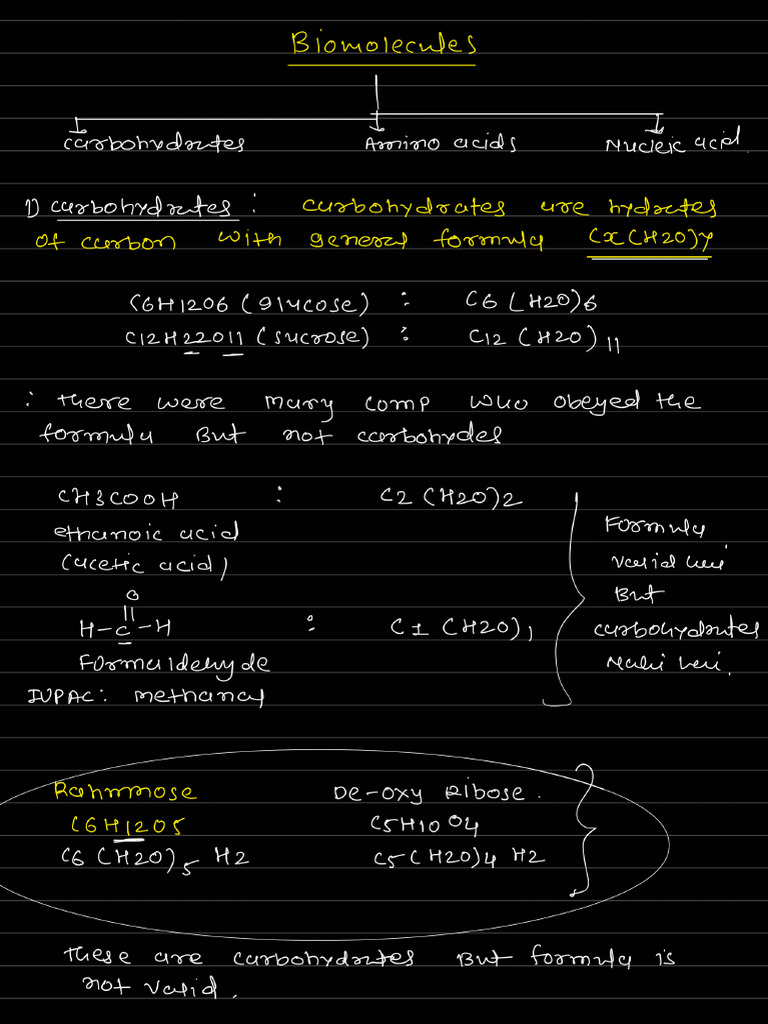 Biomolecules
carbohydrates Amino acids Nucleic acid.
1) carbohydrates : carbohydrates are hydrates
of carbon with general formula Cx(H2O)y
C6H12O6 (glucose) : C6 (H2O)6
C12H22O11 (sucrose) : C12 (H2O)11
: there were many comp who obeyed the
formula But not carbohydes
CH3COOH : C2 (H2O)2
ethanoic acid
(acetic acid)
O
||
H-C-H : C1 (H2O)1
Formaldehyde
IUPAC: methanal
Formula
valid hai
But
carbohydrates
Nahi hai.
Rahmmose De-oxy Ribose.
C6H12O5 C5H10O4
C6 (H2O)5 H2 C5(H2O)4 H2
these are carbohydrates But formula is
not valid.